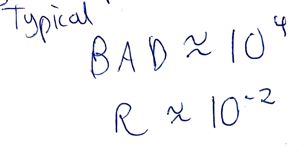 Typical
BAD ≈ 10⁴
R ≈ 10⁻²